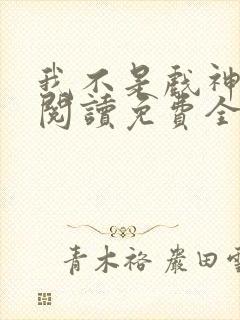 我不是戲神
閱讀免費全
青木裕 嚴田雪